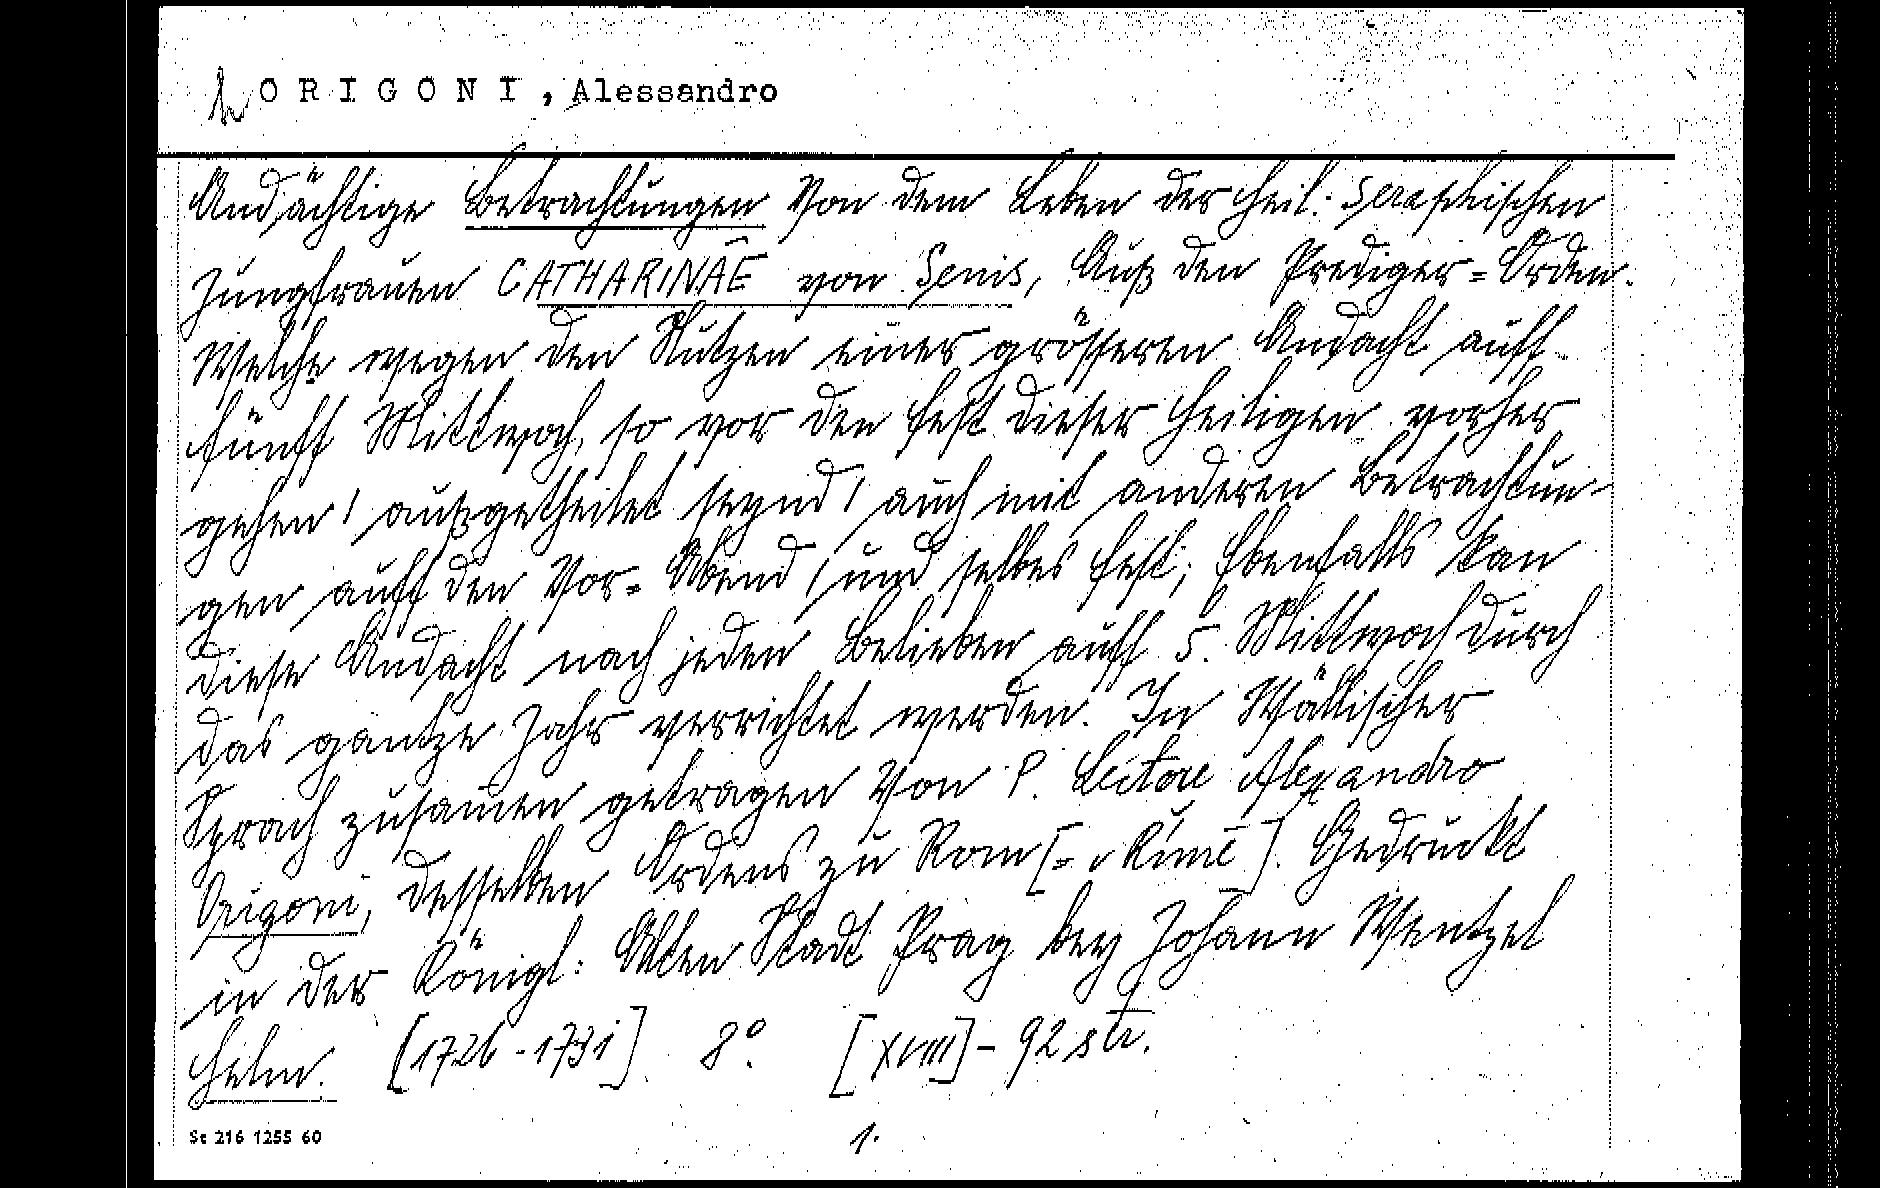 h ORIGONI, Alessandro
Andächtige Betrachtungen Von dem Leben der Heil: Seraphischen
Jungfrauen CATHARINAE von Senis, Auß den Prediger=Orden.
Welche wegen den Nutzen einer grösseren Andacht auff
fünff Mittwoch, so vor den Fest dieser Heiligen vorher
gehen / außgetheilet seynd / auch mit anderen Betrachtun-
gen auff den Vor=Abend / und selbes Fest; Ebenfalls kan
diese Andacht nach jeden Belieben auff 5. Mittwoch durch
das gantze Jahr verrichtet werden. In Wällischer
Sprach zusam̄en getragen Von P. Lectore Alexandro
Origoni, desselben Ordens zu Rom [= v Římě]. Gedruckt
in der Königl: Alten Stadt Prag bey Johann Wentzel
Helm. [1726-1731] 8°. [XVIII]-92 str.
St 216 1255 60
1.